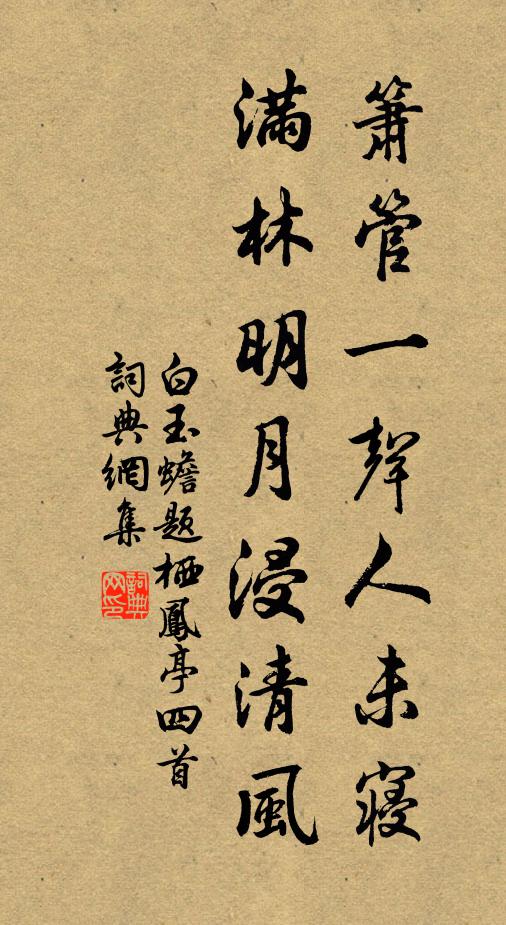 簫管一聲人未寢
滿林明月浸清風
白玉蟾题栖鳳亭四首
詞典網集
詞典網印